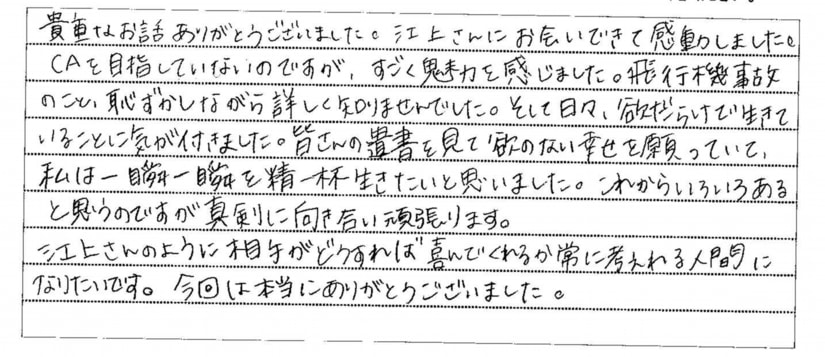 貴重なお話ありがとうございました。江上さんにお会いできて感動しました。
CAを目指していないのですが、すごく魅力を感じました。飛行機事故
のこと、恥ずかしながら詳しく知りませんでした。そして日々、欲だらけで生きて
いることに気が付きました。皆さんの遺書を見て欲のない幸せを願っていて、
私は一瞬一瞬を精一杯生きたいと思いました。これからいろいろある
と思うのですが真剣に向き合い頑張ります。
江上さんのように相手がどうすれば喜んでくれるか常に考えれる人間に
なりたいです。今回は本当にありがとうございました。